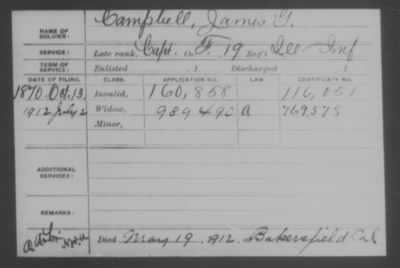 NAME OF SOLDIER: Campbell, James G.
SERVICE: Late rank, Capt. Co. F, 19 Reg't Ill Inf
TERM OF SERVICE: Enlisted , 1 Discharged , 1
DATE OF FILING. CLASS. APPLICATION NO. LAW. CERTIFICATE NO.
1870. Oct, 13, Invalid, 160,858 116,051
1912 July 2 Widow, 989490 A 769575
Minor,
ADDITIONAL SERVICES:
REMARKS:
Died May 19, 1912, Bakersfield Cal